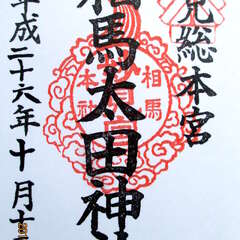 見総本宮
相馬太田神社
平成二十六年十月十二
相馬
本社